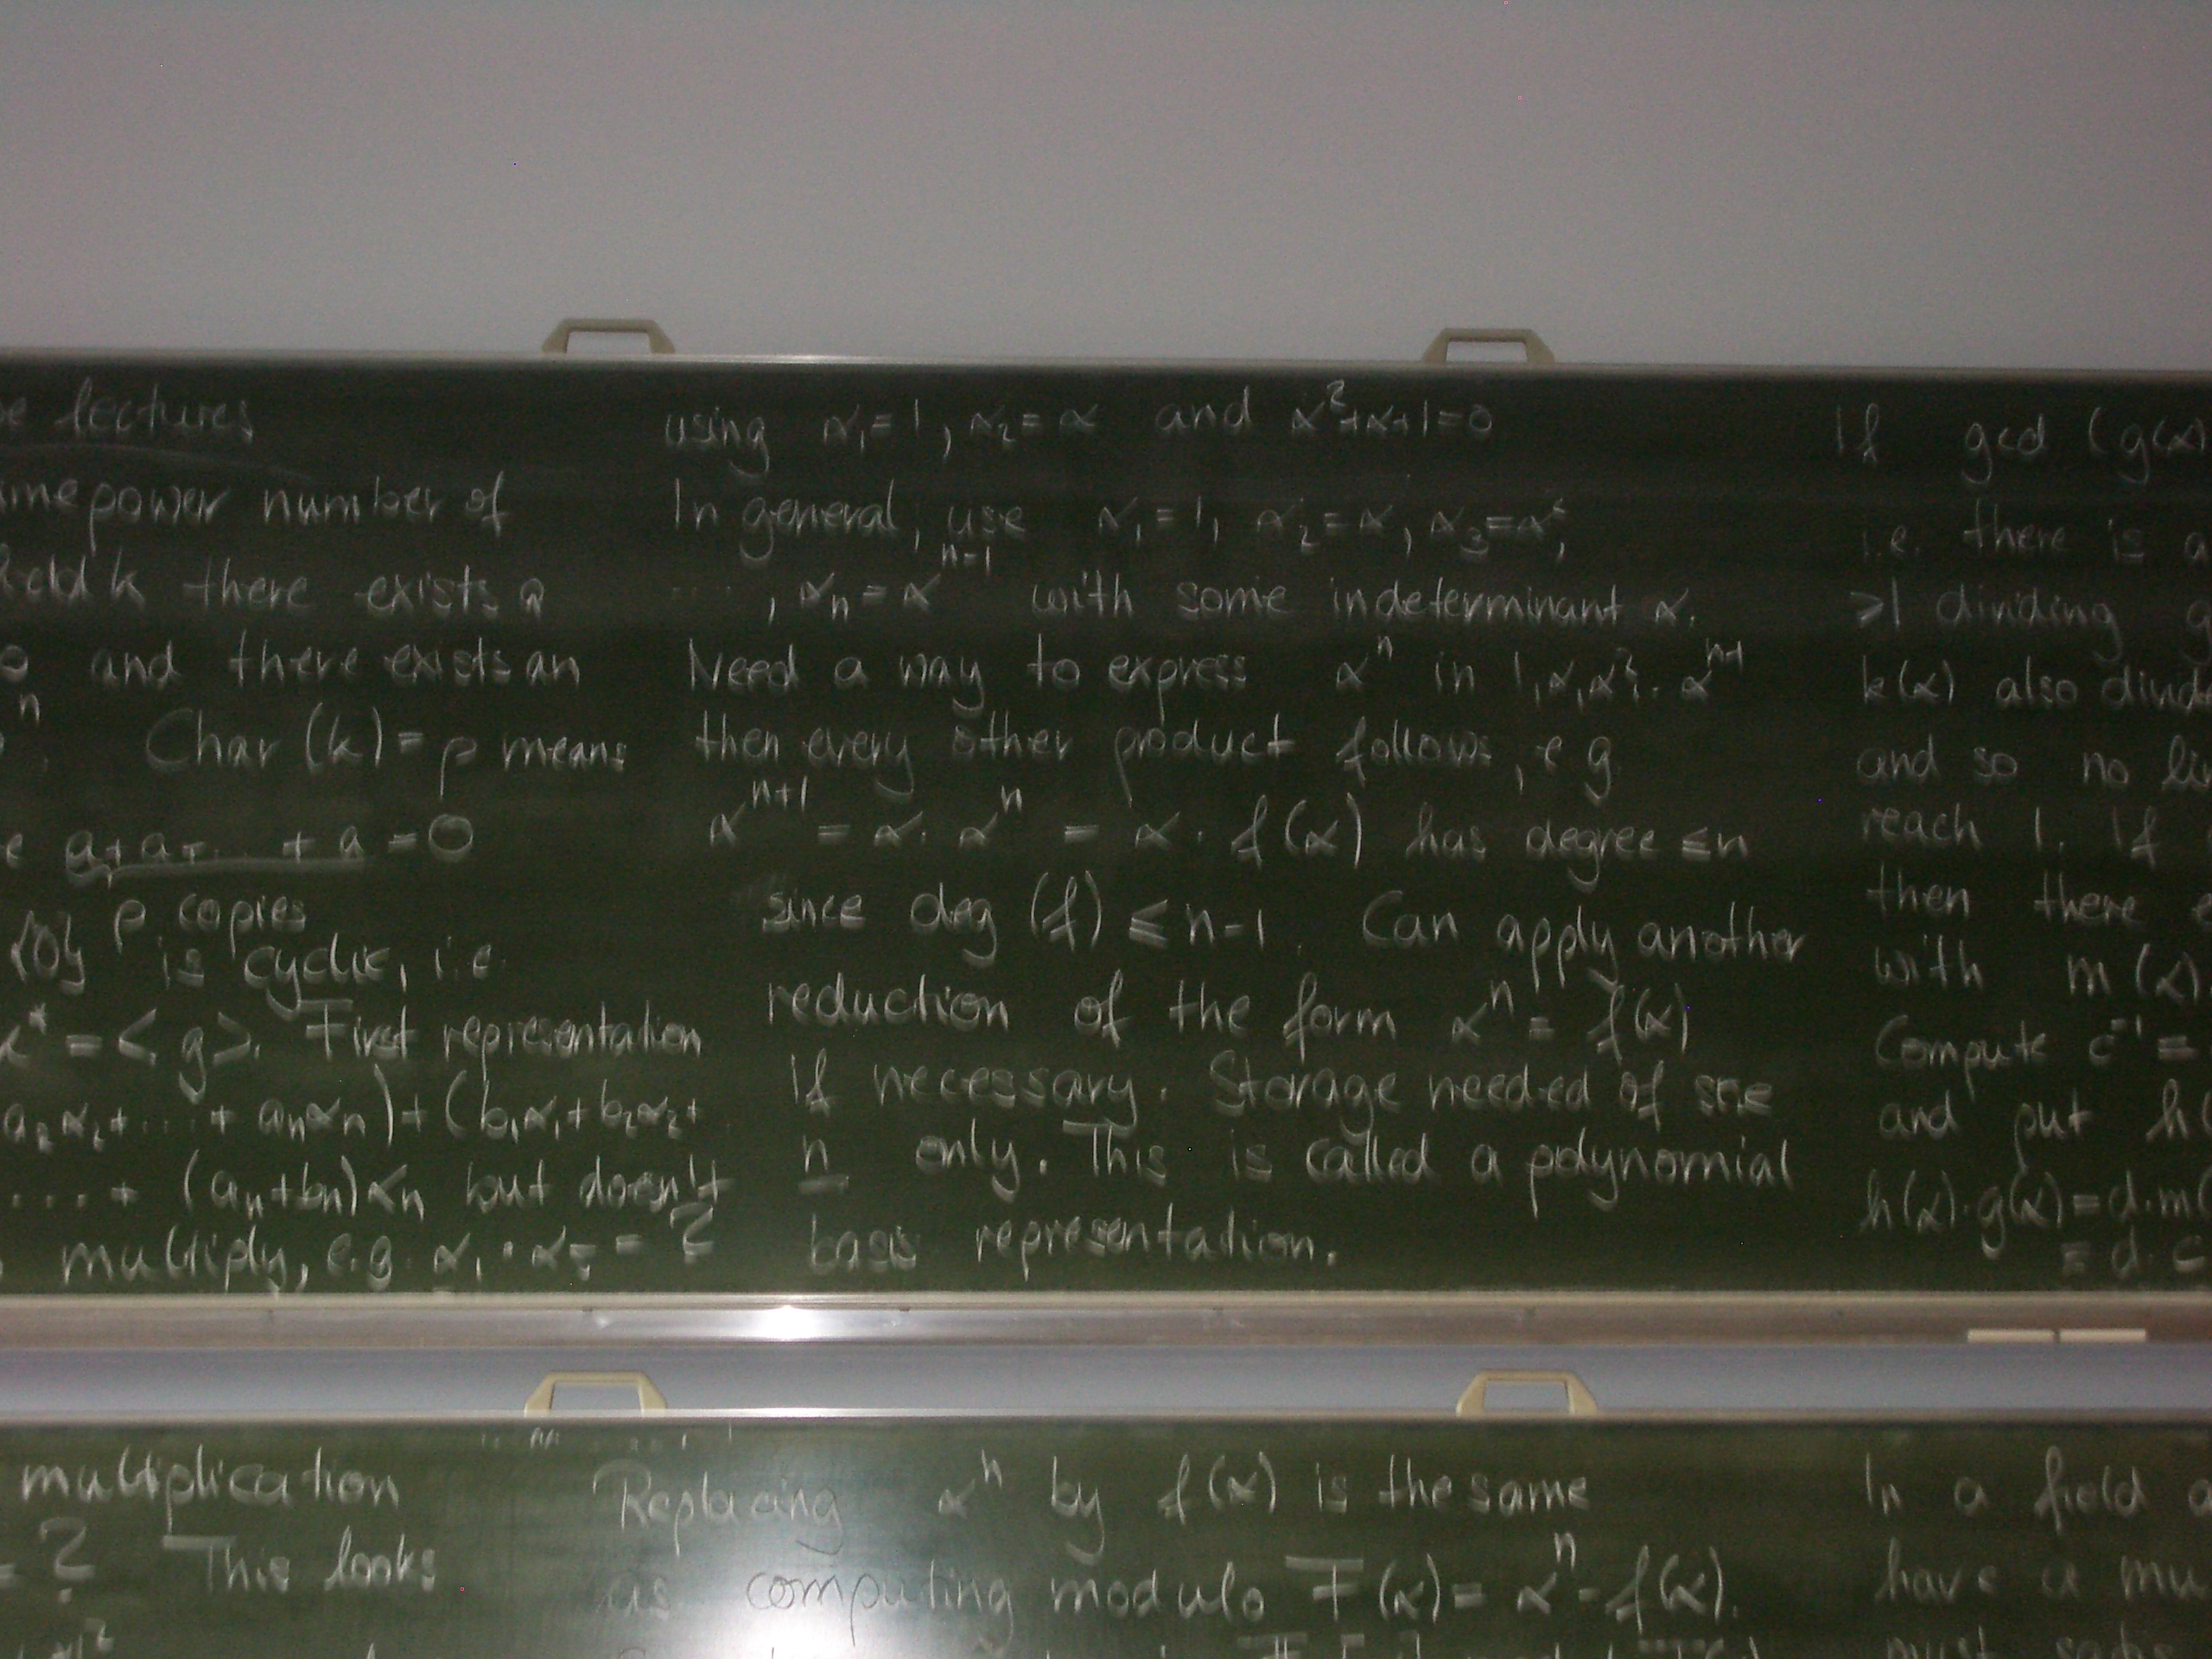 lectures
power number of
there exists a
and there exists an
n
Char (k) = p means
a+a+... + a = 0
p copies
is cyclic, i.e.
* = < g >. First representation
a₂α₂+...+ aₙαₙ)+(b₁α₁+b₂α₂+
....+ (aₙ+bₙ)αₙ but doesn't
multiply, e.g. α₁·α₅ = ?
using α₁=1, α₂=α and α²+α+1=0
In general, use α₁=1, α₂=α, α₃=α²,
...., αₙ=αⁿ⁻¹ with some indeterminant α.
Need a way to express αⁿ in 1,α,α²..αⁿ⁻¹
then every other product follows, e g
αⁿ⁺¹ = α· αⁿ = α · f(α) has degree ≤n
since deg (f) ≤ n-1. Can apply another
reduction of the form αⁿ= f(α)
if necessary. Storage needed of
n only. This is called a polynomial
basis representation.
If gcd (g(α)
i.e. there is a
>1 dividing g
k(α) also
and so no
reach 1. If
then there
with m(α)
Compute c⁻¹ =
and put h(
h(α)·g(α)=d·m(
= d. c
multiplication
= ? This looks
Replacing αⁿ by f(α) is the same
as computing modulo F(α)= αⁿ-f(α).
In a field a
have a mu